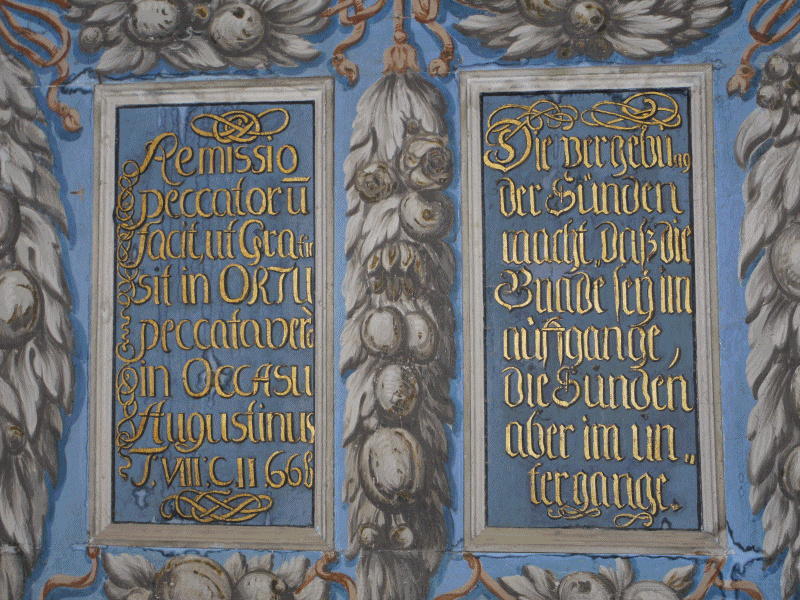 Remissio
peccatorū
facit, ut Gratia
sit in ORTU
peccata verò
in OCCASU
Augustinus
T. VIII. C. 11 668
Die vergebung
der Sünden
macht, daß die
Gnade seÿ im
aüffgange,
die Sünden,
aber im un„
tergange.